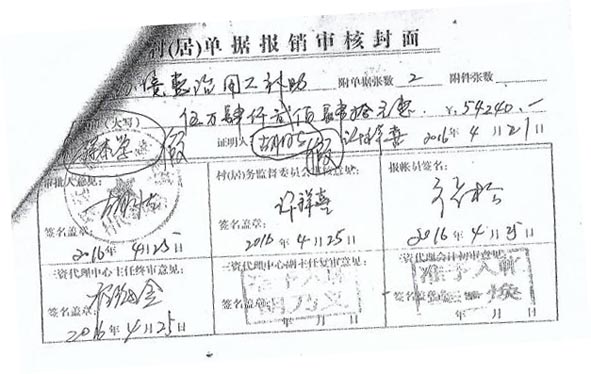 村(居)单据报销审核封面
环境整治用工补助 附单据张数 2 附件张数
(大写) 伍万肆仟贰佰肆拾元整 ¥:54240.—
假 证明人 假 许祥喜 2016年4月21日
审批人意见: 村(居)务监督委员会审核意见: 报帐员签名:
许祥喜
签名盖章: 签名盖章:
2016年4月25 2016年4月25 2016年4月25日
三资代理中心主任终审意见: 三资代理中心副主任复审意见: 三资代理会计初审意见:
准予入帐 准予入帐
签名盖章: 签名盖章: 签名盖章:
2016年4月25日 年 月 日 年 月 日